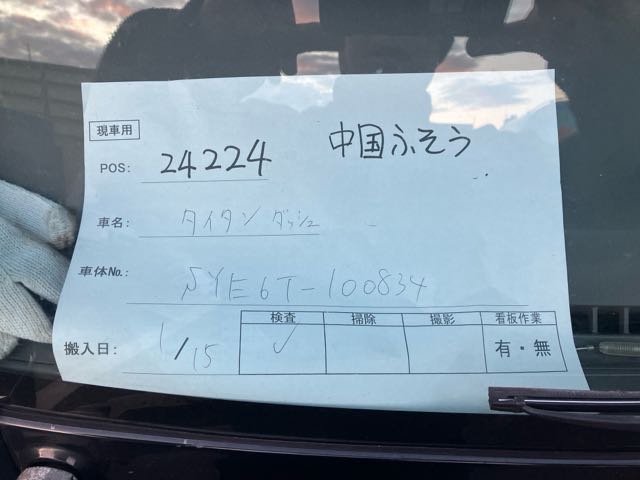 現車用
中国ふそう
POS: 24224
車名: タイタン ダッシュ
車体No.: SYE6T-100834
搬入日: 1/15
検査 掃除 撮影 看板作業
✓ 有・無